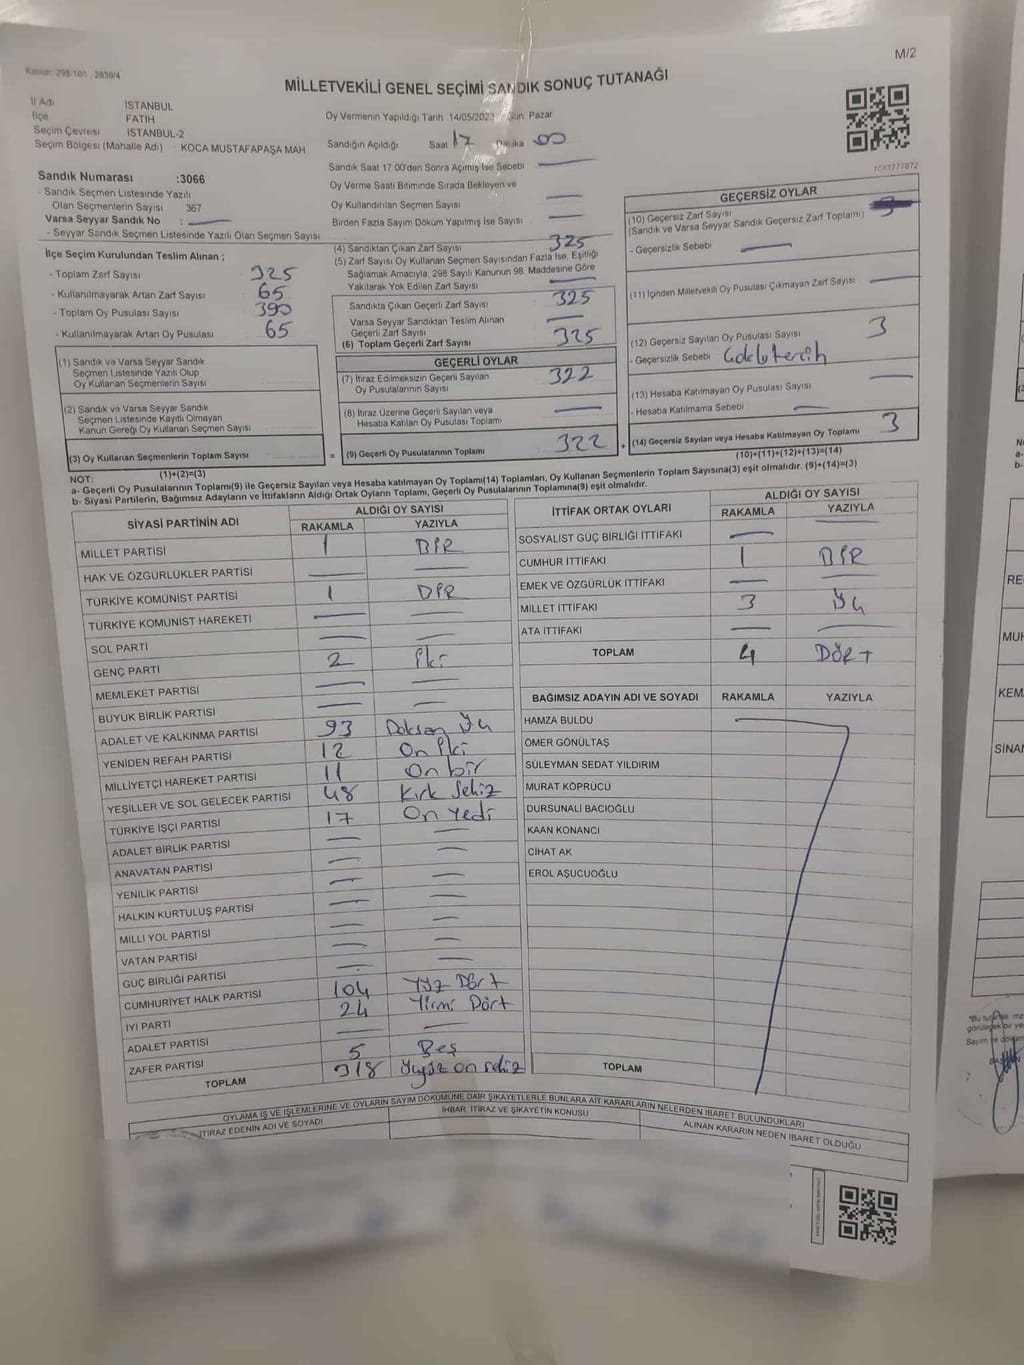 M/2
Kanun: 298/101 , 2839/4
MİLLETVEKİLİ GENEL SEÇİMİ SANDIK SONUÇ TUTANAĞI
İl Adı İSTANBUL
İlçe FATİH
Seçim Çevresi İSTANBUL-2
Seçim Bölgesi (Mahalle Adı) KOCA MUSTAFAPAŞA MAH
Sandık Numarası :3066
- Sandık Seçmen Listesinde Yazılı
Olan Seçmenlerin Sayısı 367
Varsa Seyyar Sandık No :
- Seyyar Sandık Seçmen Listesinde Yazılı Olan Seçmen Sayısı
İlçe Seçim Kurulundan Teslim Alınan ;
- Toplam Zarf Sayısı 325
- Kullanılmayarak Artan Zarf Sayısı 65
- Toplam Oy Pusulası Sayısı 390
- Kullanılmayarak Artan Oy Pusulası 65
(1) Sandık ve Varsa Seyyar Sandık
Seçmen Listesinde Yazılı Olup
Oy Kullanan Seçmenlerin Sayısı
(2) Sandık ve Varsa Seyyar Sandık
Seçmen Listesinde Kayıtlı Olmayan
Kanun Gereği Oy Kullanan Seçmen Sayısı
(3) Oy Kullanan Seçmenlerin Toplam Sayısı =
(1)+(2)=(3)
Oy Vermenin Yapıldığı Tarih 14/05/2023 Gün Pazar
Sandığın Açıldığı Saat 17 Dakika 00
Sandık Saat 17:00'den Sonra Açılmış İse Sebebi
Oy Verme Saati Bitiminde Sırada Bekleyen ve
Oy Kullandırılan Seçmen Sayısı
Birden Fazla Sayım Döküm Yapılmış İse Sayısı
(4) Sandıktan Çıkan Zarf Sayısı 325
(5) Zarf Sayısı Oy Kullanan Seçmen Sayısından Fazla İse, Eşitliği
Sağlamak Amacıyla, 298 Sayılı Kanunun 98. Maddesine Göre
Yakılarak Yok Edilen Zarf Sayısı
Sandıkta Çıkan Geçerli Zarf Sayısı 325
Varsa Seyyar Sandıktan Teslim Alınan
Geçerli Zarf Sayısı
(6) Toplam Geçerli Zarf Sayısı 325
GEÇERLİ OYLAR
(7) İtiraz Edilmeksizin Geçerli Sayılan
Oy Pusulalarının Sayısı 322
(8) İtiraz Üzerine Geçerli Sayılan veya
Hesaba Katılan Oy Pusulası Toplamı
(9) Geçerli Oy Pusulalarının Toplamı 322 +
1683777872
GEÇERSİZ OYLAR
(10) Geçersiz Zarf Sayısı
(Sandık ve Varsa Seyyar Sandık Geçersiz Zarf Toplamı)
- Geçersizlik Sebebi
(11) İçinden Milletvekili Oy Pusulası Çıkmayan Zarf Sayısı
(12) Geçersiz Sayılan Oy Pusulası Sayısı 3
- Geçersizlik Sebebi Çoklu tercih
(13) Hesaba Katılmayan Oy Pusulası Sayısı
- Hesaba Katılmama Sebebi
(14) Geçersiz Sayılan veya Hesaba Katılmayan Oy Toplamı 3
(10)+(11)+(12)+(13)=(14)
NOT:
a- Geçerli Oy Pusulalarının Toplamı(9) ile Geçersiz Sayılan veya Hesaba katılmayan Oy Toplamı(14) Toplamları, Oy Kullanan Seçmenlerin Toplam Sayısına(3) eşit olmalıdır. (9)+(14)=(3)
b- Siyasi Partilerin, Bağımsız Adayların ve İttifakların Aldığı Ortak Oyların Toplamı, Geçerli Oy Pusulalarının Toplamına(9) eşit olmalıdır.
SİYASİ PARTİNİN ADI ALDIĞI OY SAYISI
RAKAMLA YAZIYLA
MİLLET PARTİSİ 1 BİR
HAK VE ÖZGÜRLÜKLER PARTİSİ
TÜRKİYE KOMÜNİST PARTİSİ 1 BİR
TÜRKİYE KOMÜNİST HAREKETİ
SOL PARTİ
GENÇ PARTİ 2 İki
MEMLEKET PARTİSİ
BÜYÜK BİRLİK PARTİSİ
ADALET VE KALKINMA PARTİSİ 93 Doksan Üç
YENİDEN REFAH PARTİSİ 12 On İki
MİLLİYETÇİ HAREKET PARTİSİ 11 On bir
YEŞİLLER VE SOL GELECEK PARTİSİ 48 Kırk Sekiz
TÜRKİYE İŞÇİ PARTİSİ 17 On Yedi
ADALET BİRLİK PARTİSİ
ANAVATAN PARTİSİ
YENİLİK PARTİSİ
HALKIN KURTULUŞ PARTİSİ
MİLLİ YOL PARTİSİ
VATAN PARTİSİ
GÜÇ BİRLİĞİ PARTİSİ
CUMHURİYET HALK PARTİSİ 104 Yüz Dört
İYİ PARTİ 24 Yirmi Dört
ADALET PARTİSİ
ZAFER PARTİSİ 5 Beş
TOPLAM 318 Üçyüz on sekiz
İTTİFAK ORTAK OYLARI ALDIĞI OY SAYISI
RAKAMLA YAZIYLA
SOSYALİST GÜÇ BİRLİĞİ İTTİFAKI
CUMHUR İTTİFAKI 1 BİR
EMEK VE ÖZGÜRLÜK İTTİFAKI
MİLLET İTTİFAKI 3 Üç
ATA İTTİFAKI
TOPLAM 4 DÖRT
BAĞIMSIZ ADAYIN ADI VE SOYADI RAKAMLA YAZIYLA
HAMZA BULDU
ÖMER GÖNÜLTAŞ
SÜLEYMAN SEDAT YILDIRIM
MURAT KÖPRÜCÜ
DURSUNALİ BACIOĞLU
KAAN KONANCI
CİHAT AK
EROL AŞUCUOĞLU
TOPLAM
OYLAMA İŞ VE İŞLEMLERİNE VE OYLARIN SAYIM DÖKÜMÜNE DAİR ŞİKAYETLERLE BUNLARA AİT KARARLARIN NELERDEN İBARET BULUNDUKLARI
İTİRAZ EDENİN ADI VE SOYADI İHBAR, İTİRAZ VE ŞİKAYETİN KONUSU ALINAN KARARIN NEDEN İBARET OLDUĞU